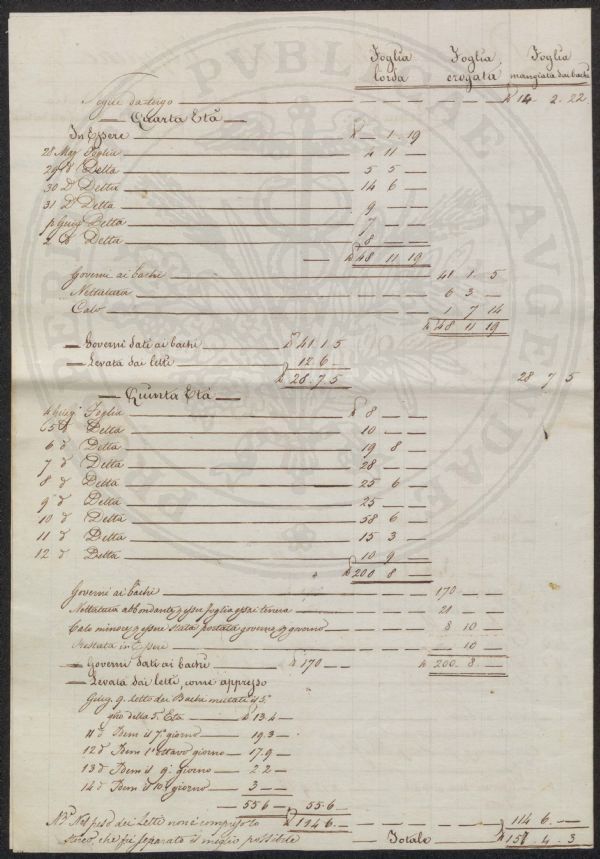 Foglia lorda Foglia erogata Foglia mangiata dai bachi
Segue da tergo — — — — — — — ℔ 14. 2. 22
— Quarta Età —
In Essere ℔ — 1. 19
28 Mag. Foglia 4 11 —
29 d° Detta 5 5 —
30 D° Detta 14 6 —
31 D° Detta 9 — —
p. Giug. Detta 7 — —
2 d° Detta 8 — —
— ℔ 48 11 19
Governi ai bachi 41 1 5
Nettatura 6 3 —
Calo 1 7 14
℔ 48 11 19
— Governi dati ai bachi — ℔ 41. 1. 5
— Levata dai letti — 12. 6 —
℔ 28. 7. 5 28 7 5
— Quinta Età —
4 Giug. Foglia ℔ 8 — —
5 d° Detta 10 — —
6 d° Detta 19 8 —
7 d° Detta 28 — —
8 d° Detta 25 6 —
9 d° Detta 25 — —
10 d° Detta 58 6 —
11 d° Detta 15 3 —
12 d° Detta 10 9 —
℔ 200 8 —
Governi ai bachi 170 — —
Nettatura abbondante p essere foglia assai tenera 21 — —
Calo minore p essere stata portata governo p governo 8 10 —
Restata in Essere — 10 —
— Governi dati ai bachi — ℔ 170 — — ℔ 200. 8 —
— Levata dai letti, come appresso
Giug. 9. letto dei Bachi mutati il 5°
giro della 5ª Età — ℔ 13.4 —
11 d° Idem il 7° giorno — 19.3 —
12 d° Idem l'ottavo giorno — 17.9 —
13 d° Idem il 9° giorno — 2.2 —
14 d° Idem il 10° giorno — 3 — —
— 55 6 — 55.6 —
NB. Nel peso dei Letti non è compreso lo ℔ 114 6. — 114 6. —
sterco, che fu separato il meglio possibile — Totale — ℔ 157. 4. 3